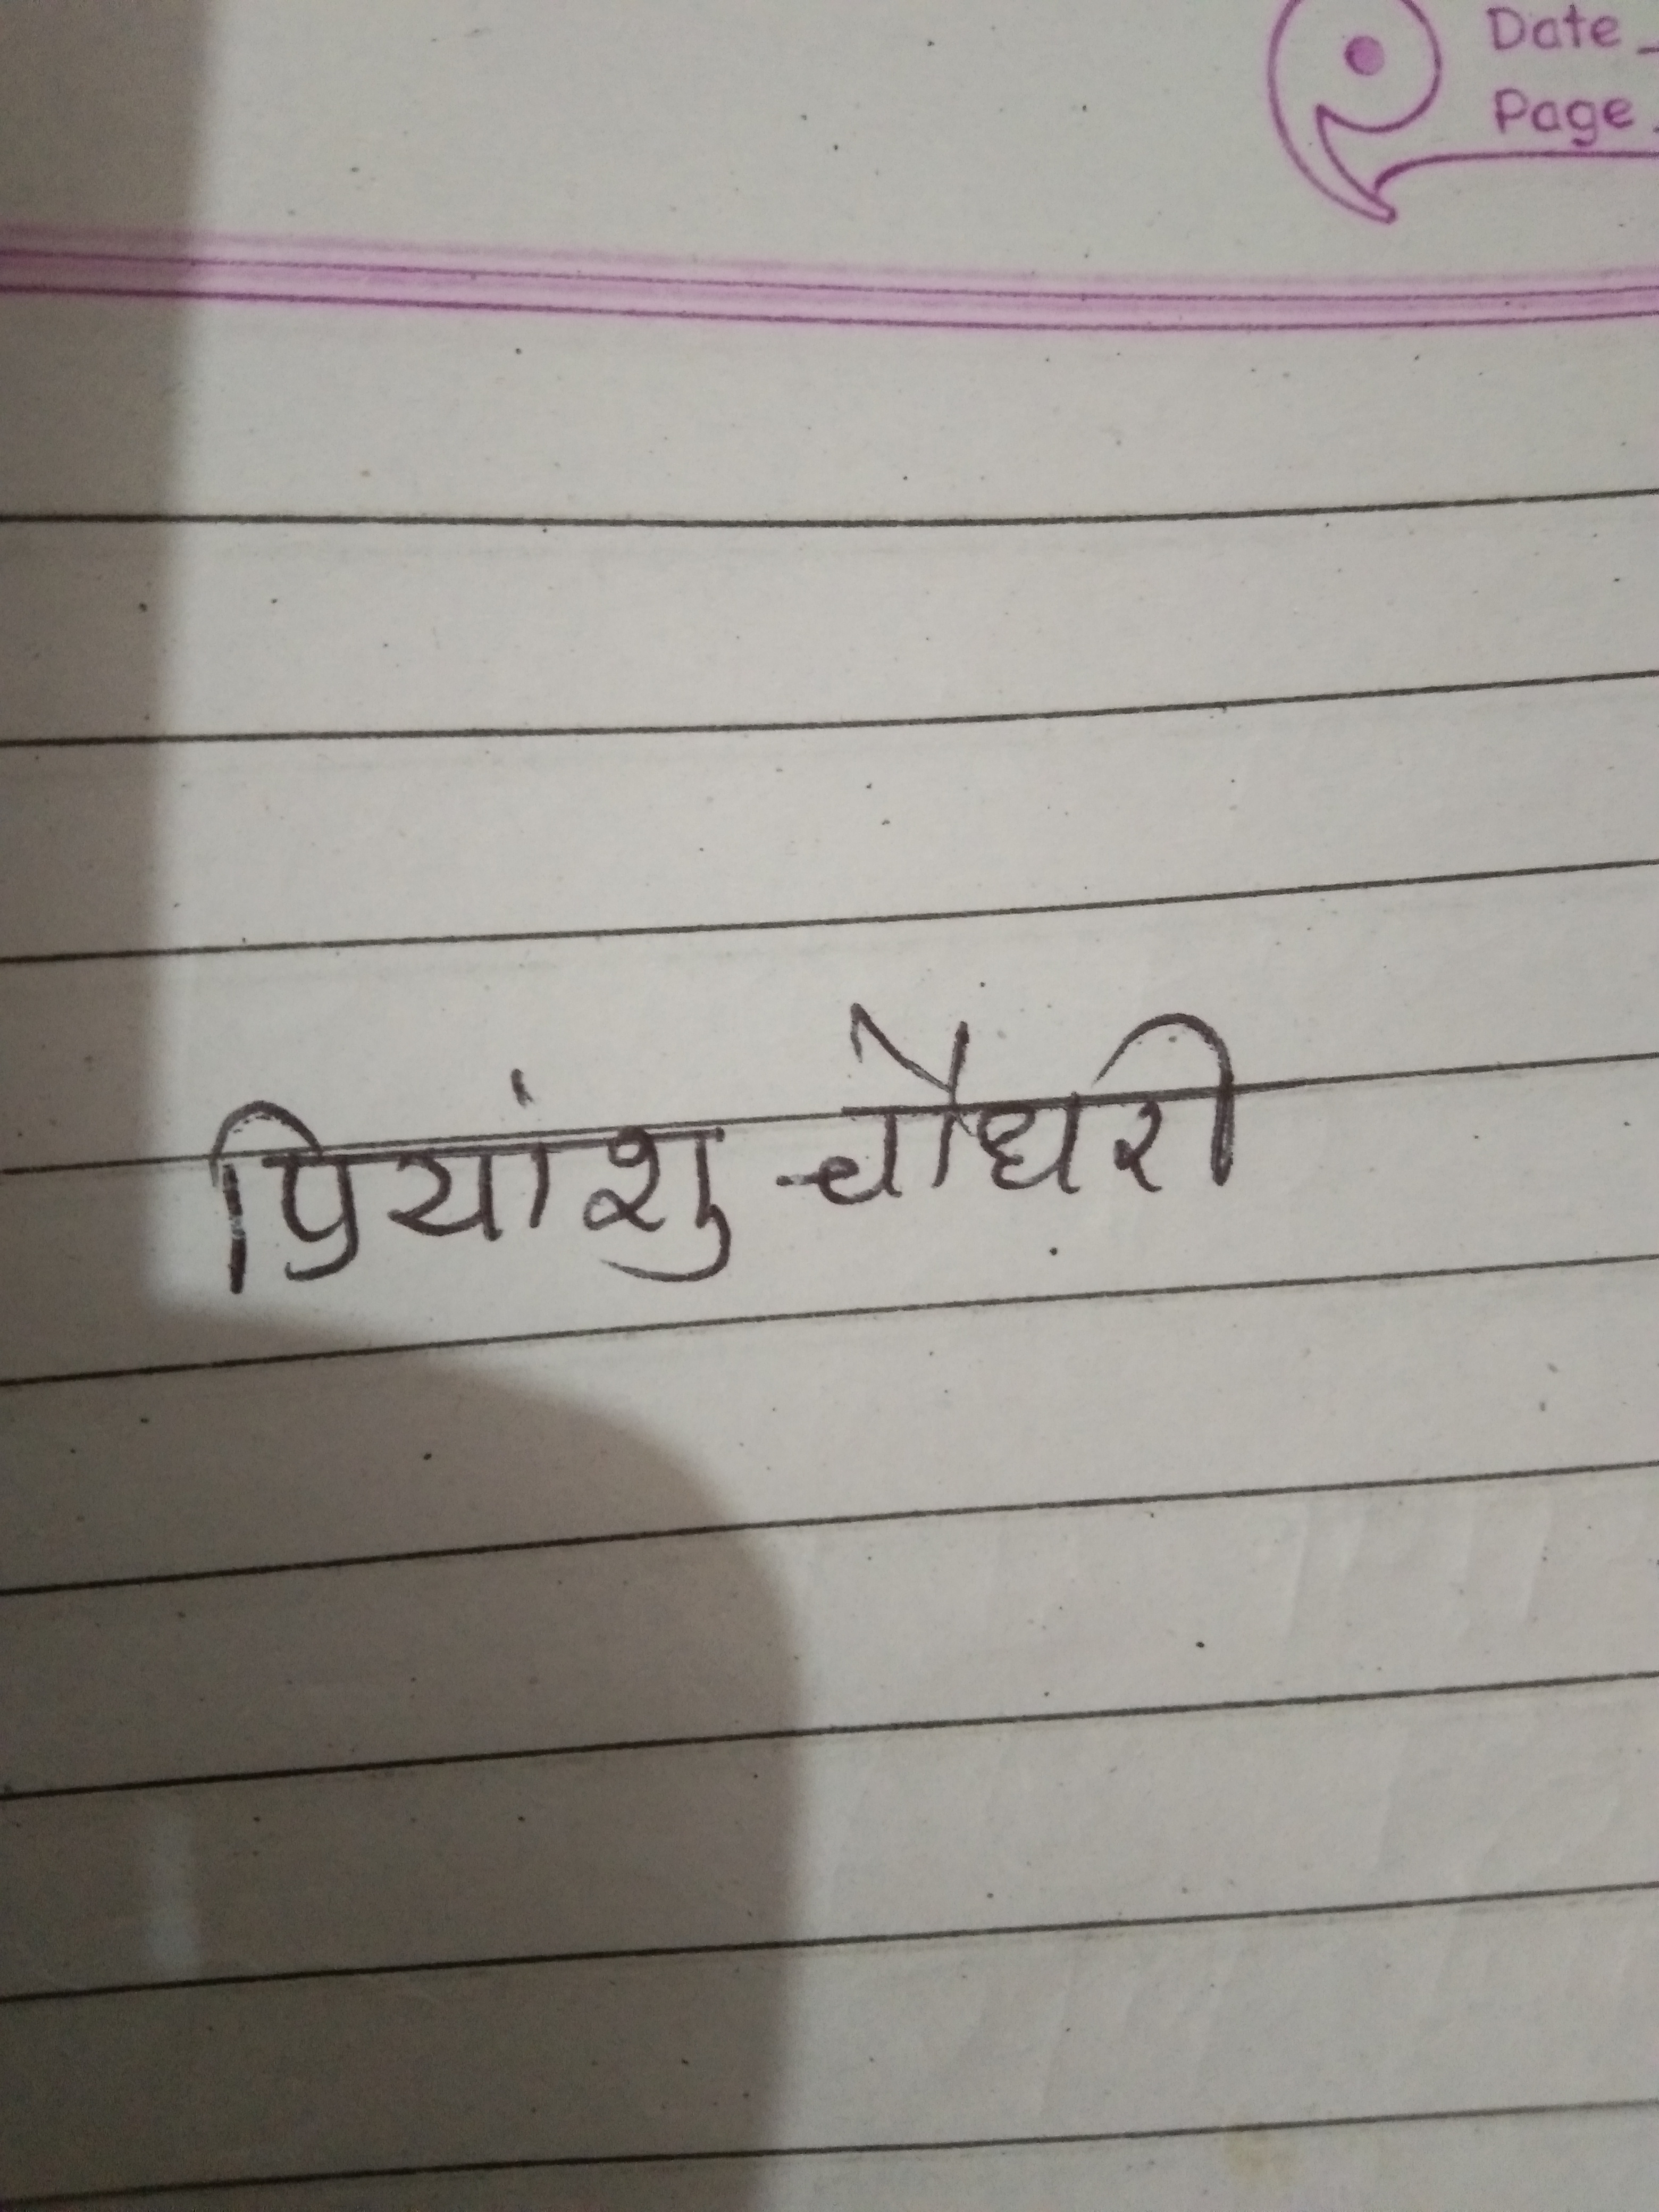 Date
Page
प्रियांशु चौधरी